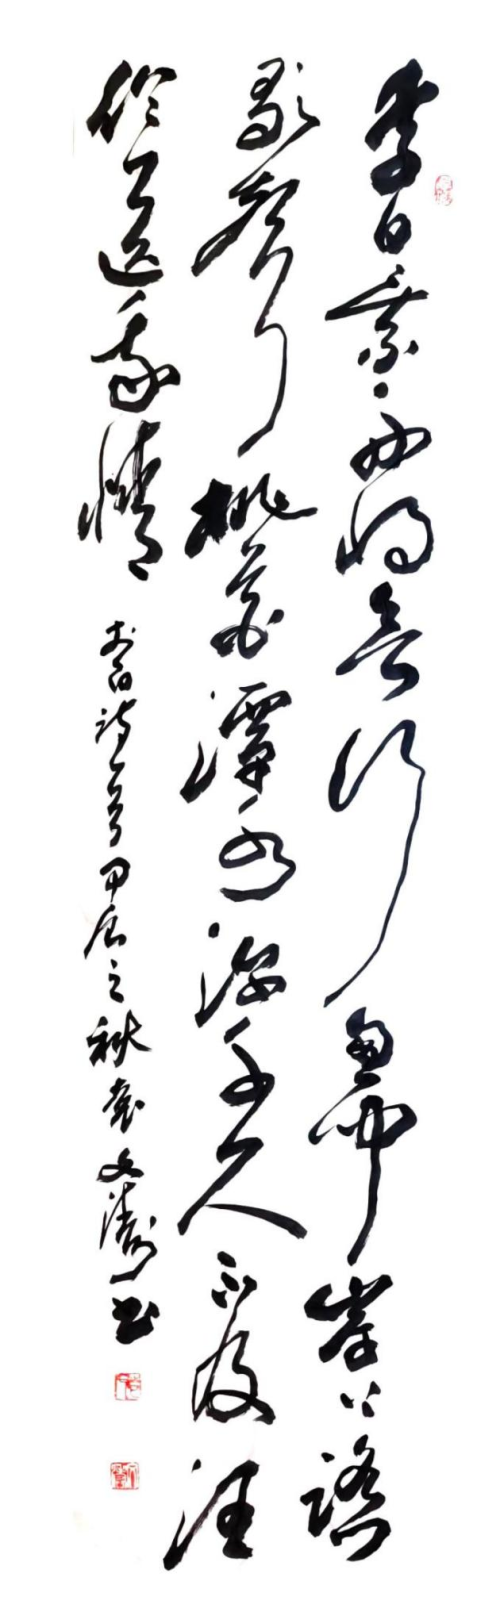 李白乘舟将欲行忽闻岸上踏
歌声桃花潭水深千尺不及汪
伦送我情
李白诗一首甲辰之秋袁文涛书